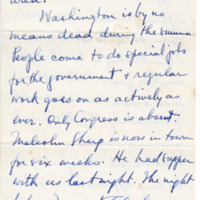 Washington is by no
means dead during the summer.
People come to do special jobs
for the government & regular
work goes on as actively as
ever. Only Congress is absent.
Malcolm Sharp is now in town
for six weeks. He had supper
with us last night. The night